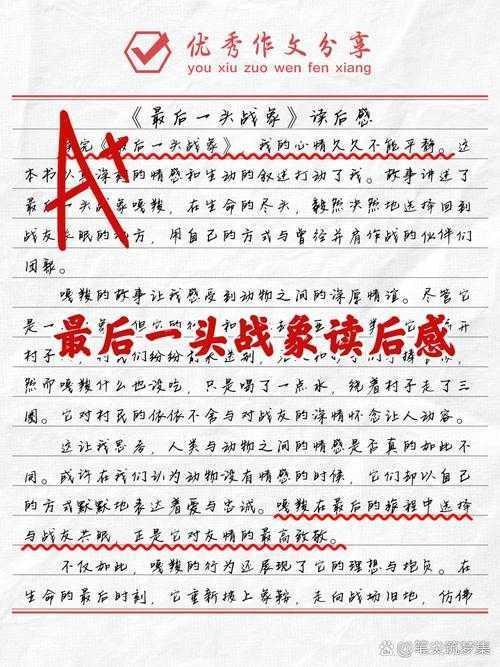 优秀作文分享
you xiu zuo wen fen xiang
《最后一头战象》读后感
完《最后一头战象》,我的心情久久不能平静。这
A+
本书以其深刻的情感和生动的叙述打动了我。故事讲述了
最后一头战象嘎羧,在生命的尽头,毅然决然地选择回到
战友长眠的地方,用自己的方式与曾经并肩作战的伙伴们
团聚。
嘎羧的故事让我感受到动物之间的深厚情谊。尽管它
是一 但它的 和
最后一头战象读后感
村子 们纷纷前来送别,
然而嘎羧什么也没吃,只是喝了一点水,绕着村子走了三
圈。它对村民的依依不舍与对战友的深情怀念让人动容。
这让我思考,人类与动物之间的情感是否真的如此不
同。或许在我们认为动物没有情感的时候,它们却以自己
的方式默默地表达着爱与忠诚。嘎羧在最后的旅程中选择
与战友共眠,正是它对友情的最高致敬。
不仅如此,嘎羧的行为还展现了它的理想与抱负。在
生命的最后时刻,它重新披上象鞍,走向战场旧地,仿佛
@笔尖筑梦集